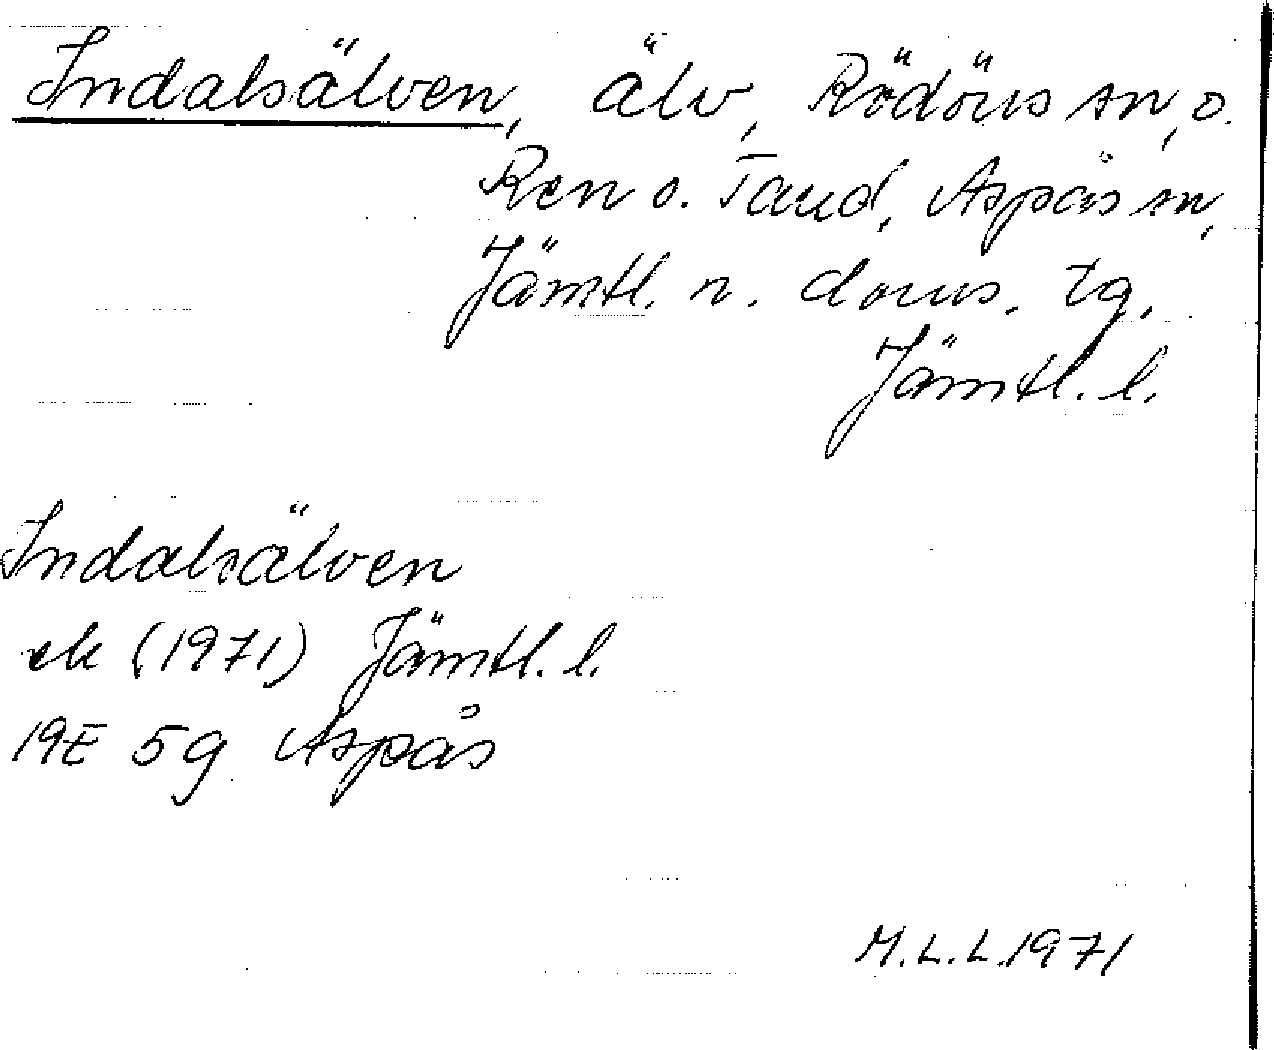 Indalsälven, älv, Rödöns sn, o.
Ren o. Tand, Aspås sn,
Jämtl. n. doms. tg.
Jämtl. l.
Indalsälven
ek (1971) Jämtl. l.
19E 5g Aspås
M.L.L. 1971